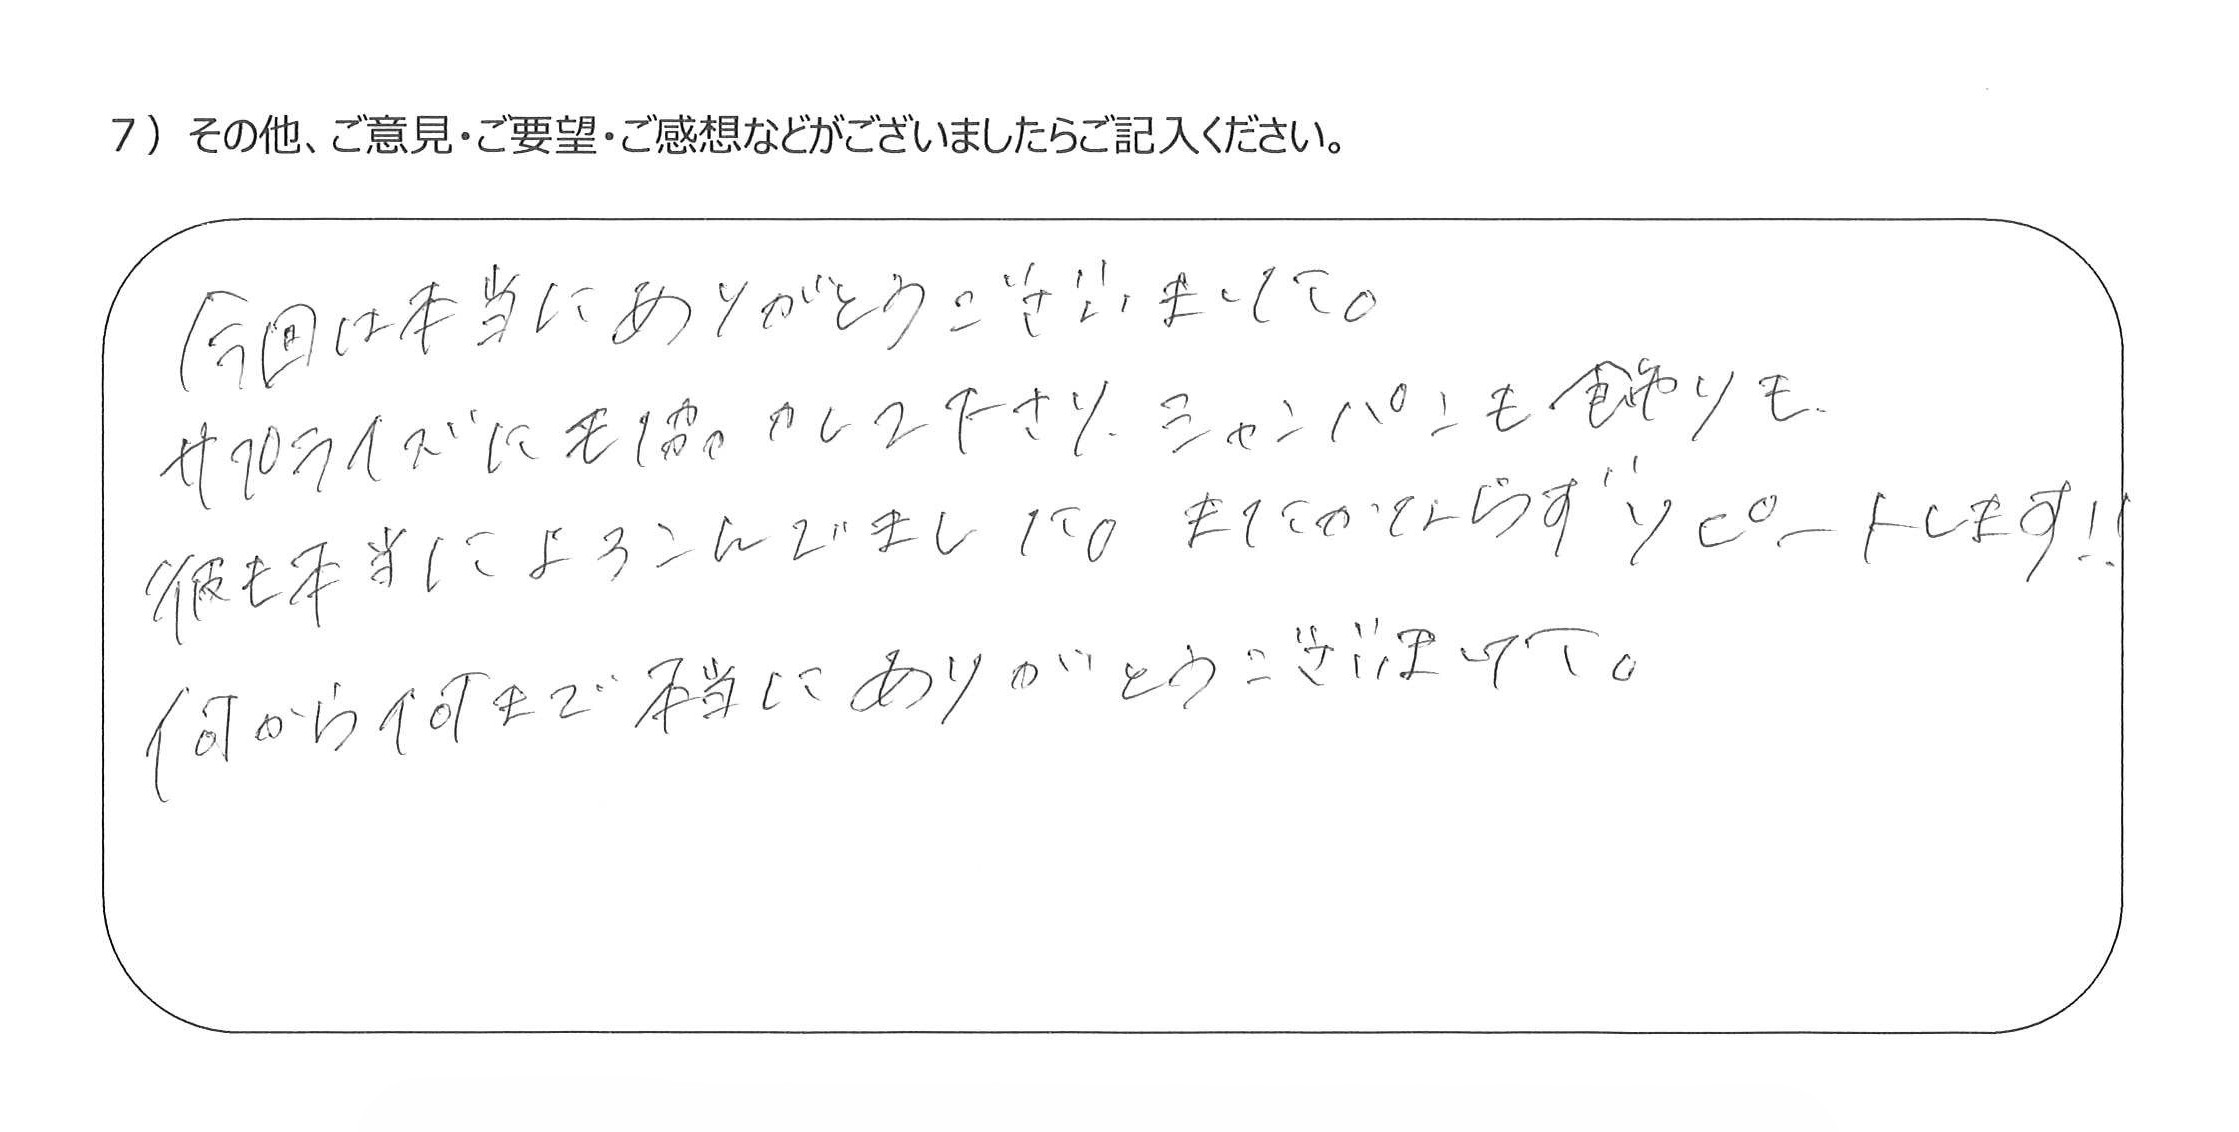 7）その他、ご意見・ご要望・ご感想などがございましたらご記入ください。
今回は本当にありがとうございました。
サプライズにも協力して下さり、シャンパンも飾りも、
彼も本当によろこんでました。またかならずリピートします!!
何から何まで本当にありがとうございました。